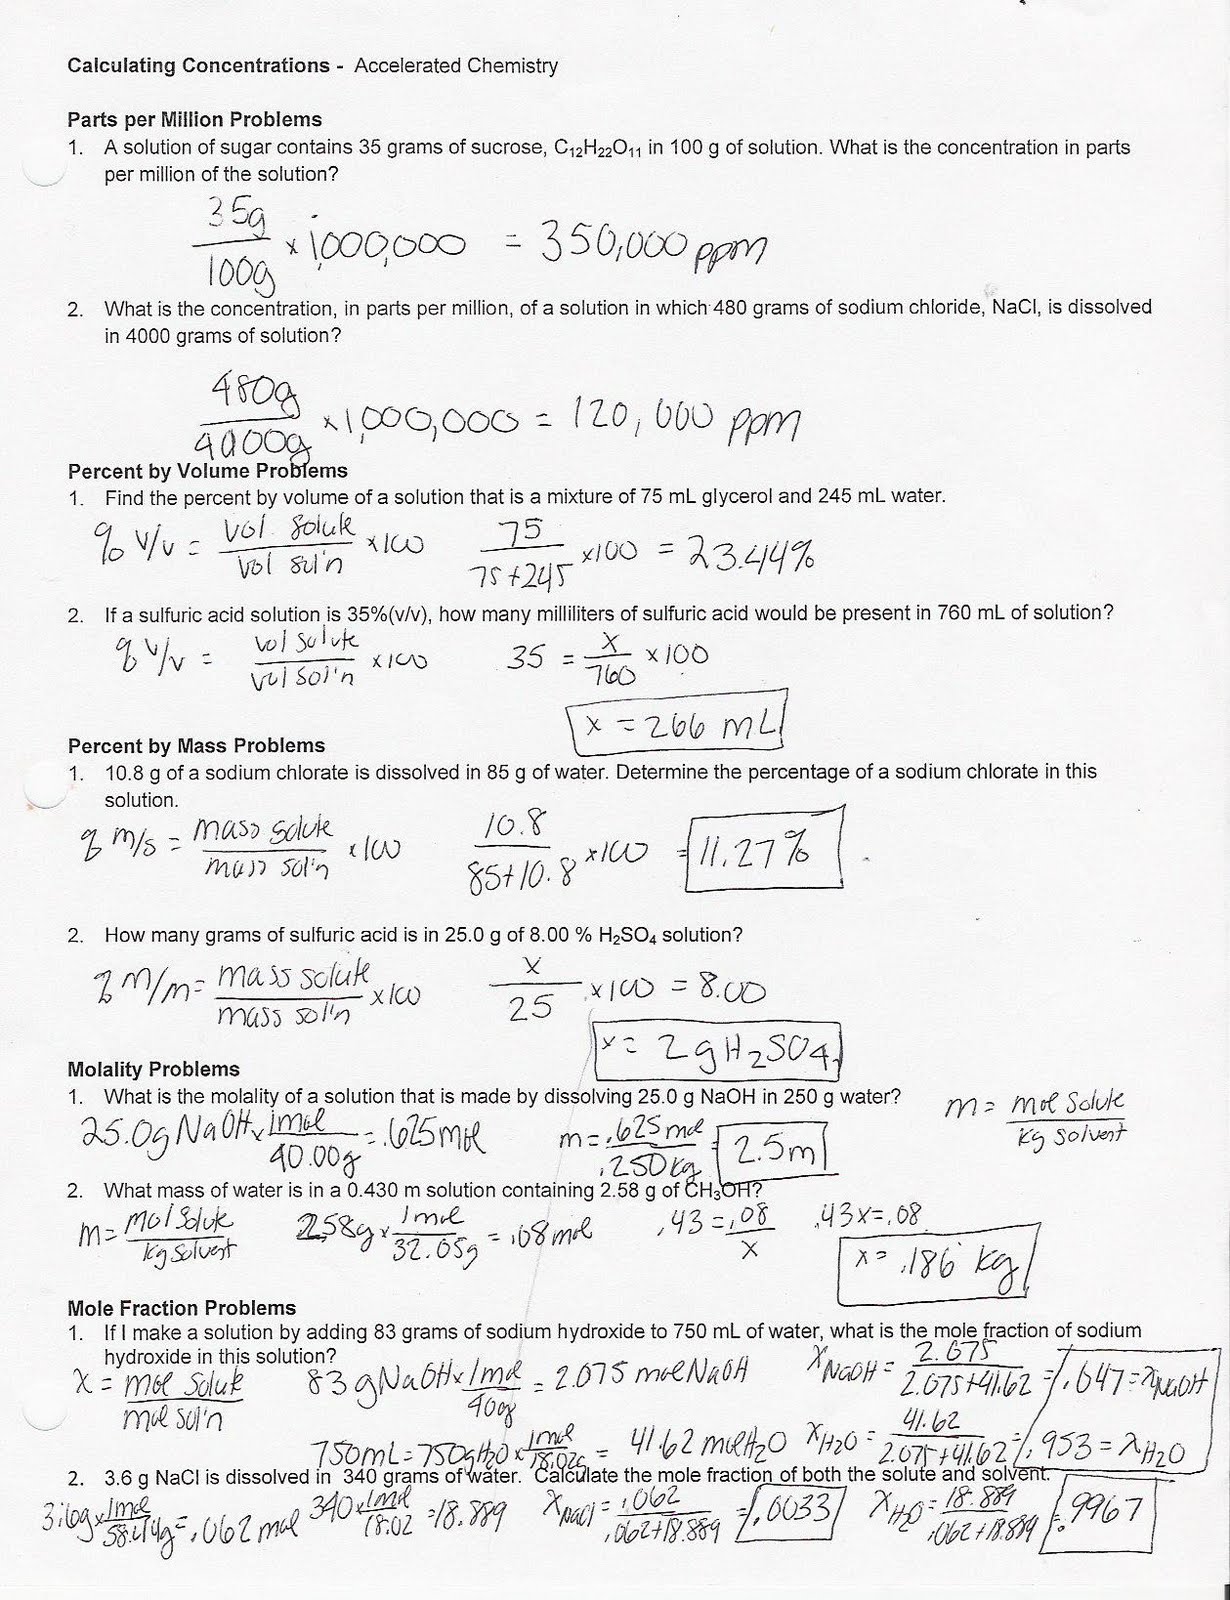 Calculating Concentrations - Accelerated Chemistry
Parts per Million Problems
1. A solution of sugar contains 35 grams of sucrose, C₁₂H₂₂O₁₁ in 100 g of solution. What is the concentration in parts
per million of the solution?
35g/100g × 1,000,000 = 350,000 ppm
2. What is the concentration, in parts per million, of a solution in which 480 grams of sodium chloride, NaCl, is dissolved
in 4000 grams of solution?
480g/4000g × 1,000,000 = 120,000 ppm
Percent by Volume Problems
1. Find the percent by volume of a solution that is a mixture of 75 mL glycerol and 245 mL water.
% v/v = vol. solute/vol sol'n × 100 75/75+245 × 100 = 23.44%
2. If a sulfuric acid solution is 35%(v/v), how many milliliters of sulfuric acid would be present in 760 mL of solution?
% v/v = vol solute/vol sol'n × 100 35 = x/760 × 100
x = 266 mL
Percent by Mass Problems
1. 10.8 g of a sodium chlorate is dissolved in 85 g of water. Determine the percentage of a sodium chlorate in this
solution.
% m/s = mass solute/mass sol'n × 100 10.8/85+10.8 × 100 = 11.27%
2. How many grams of sulfuric acid is in 25.0 g of 8.00 % H₂SO₄ solution?
% m/m = mass solute/mass sol'n × 100 x/25 × 100 = 8.00
x = 2g H₂SO₄
Molality Problems
1. What is the molality of a solution that is made by dissolving 25.0 g NaOH in 250 g water?
m = mol solute/kg solvent
25.0g NaOH × 1mol/40.00g = .625 mol m = .625 mol/.250 kg = 2.5m
2. What mass of water is in a 0.430 m solution containing 2.58 g of CH₃OH?
m = mol solute/kg solvent 2.58g × 1mol/32.05g = .08 mol .43 = .08/x .43x = .08
x = .186 kg
Mole Fraction Problems
1. If I make a solution by adding 83 grams of sodium hydroxide to 750 mL of water, what is the mole fraction of sodium
hydroxide in this solution?
X = mol solute/mol sol'n 83 g NaOH × 1mol/40g = 2.075 mol NaOH X NaOH = 2.075/2.075+41.62 = .047 = X NaOH
750mL = 750g H₂O × 1mol/18.02g = 41.62 mol H₂O X H₂O = 41.62/2.075+41.62 = .953 = X H₂O
2. 3.6 g NaCl is dissolved in 340 grams of water. Calculate the mole fraction of both the solute and solvent.
3.6g × 1mol/58.44g = .062 mol 340 × 1mol/18.02 = 18.889 X NaCl = .062/.062+18.889 = .0033 X H₂O = 18.889/.062+18.889 = .9967